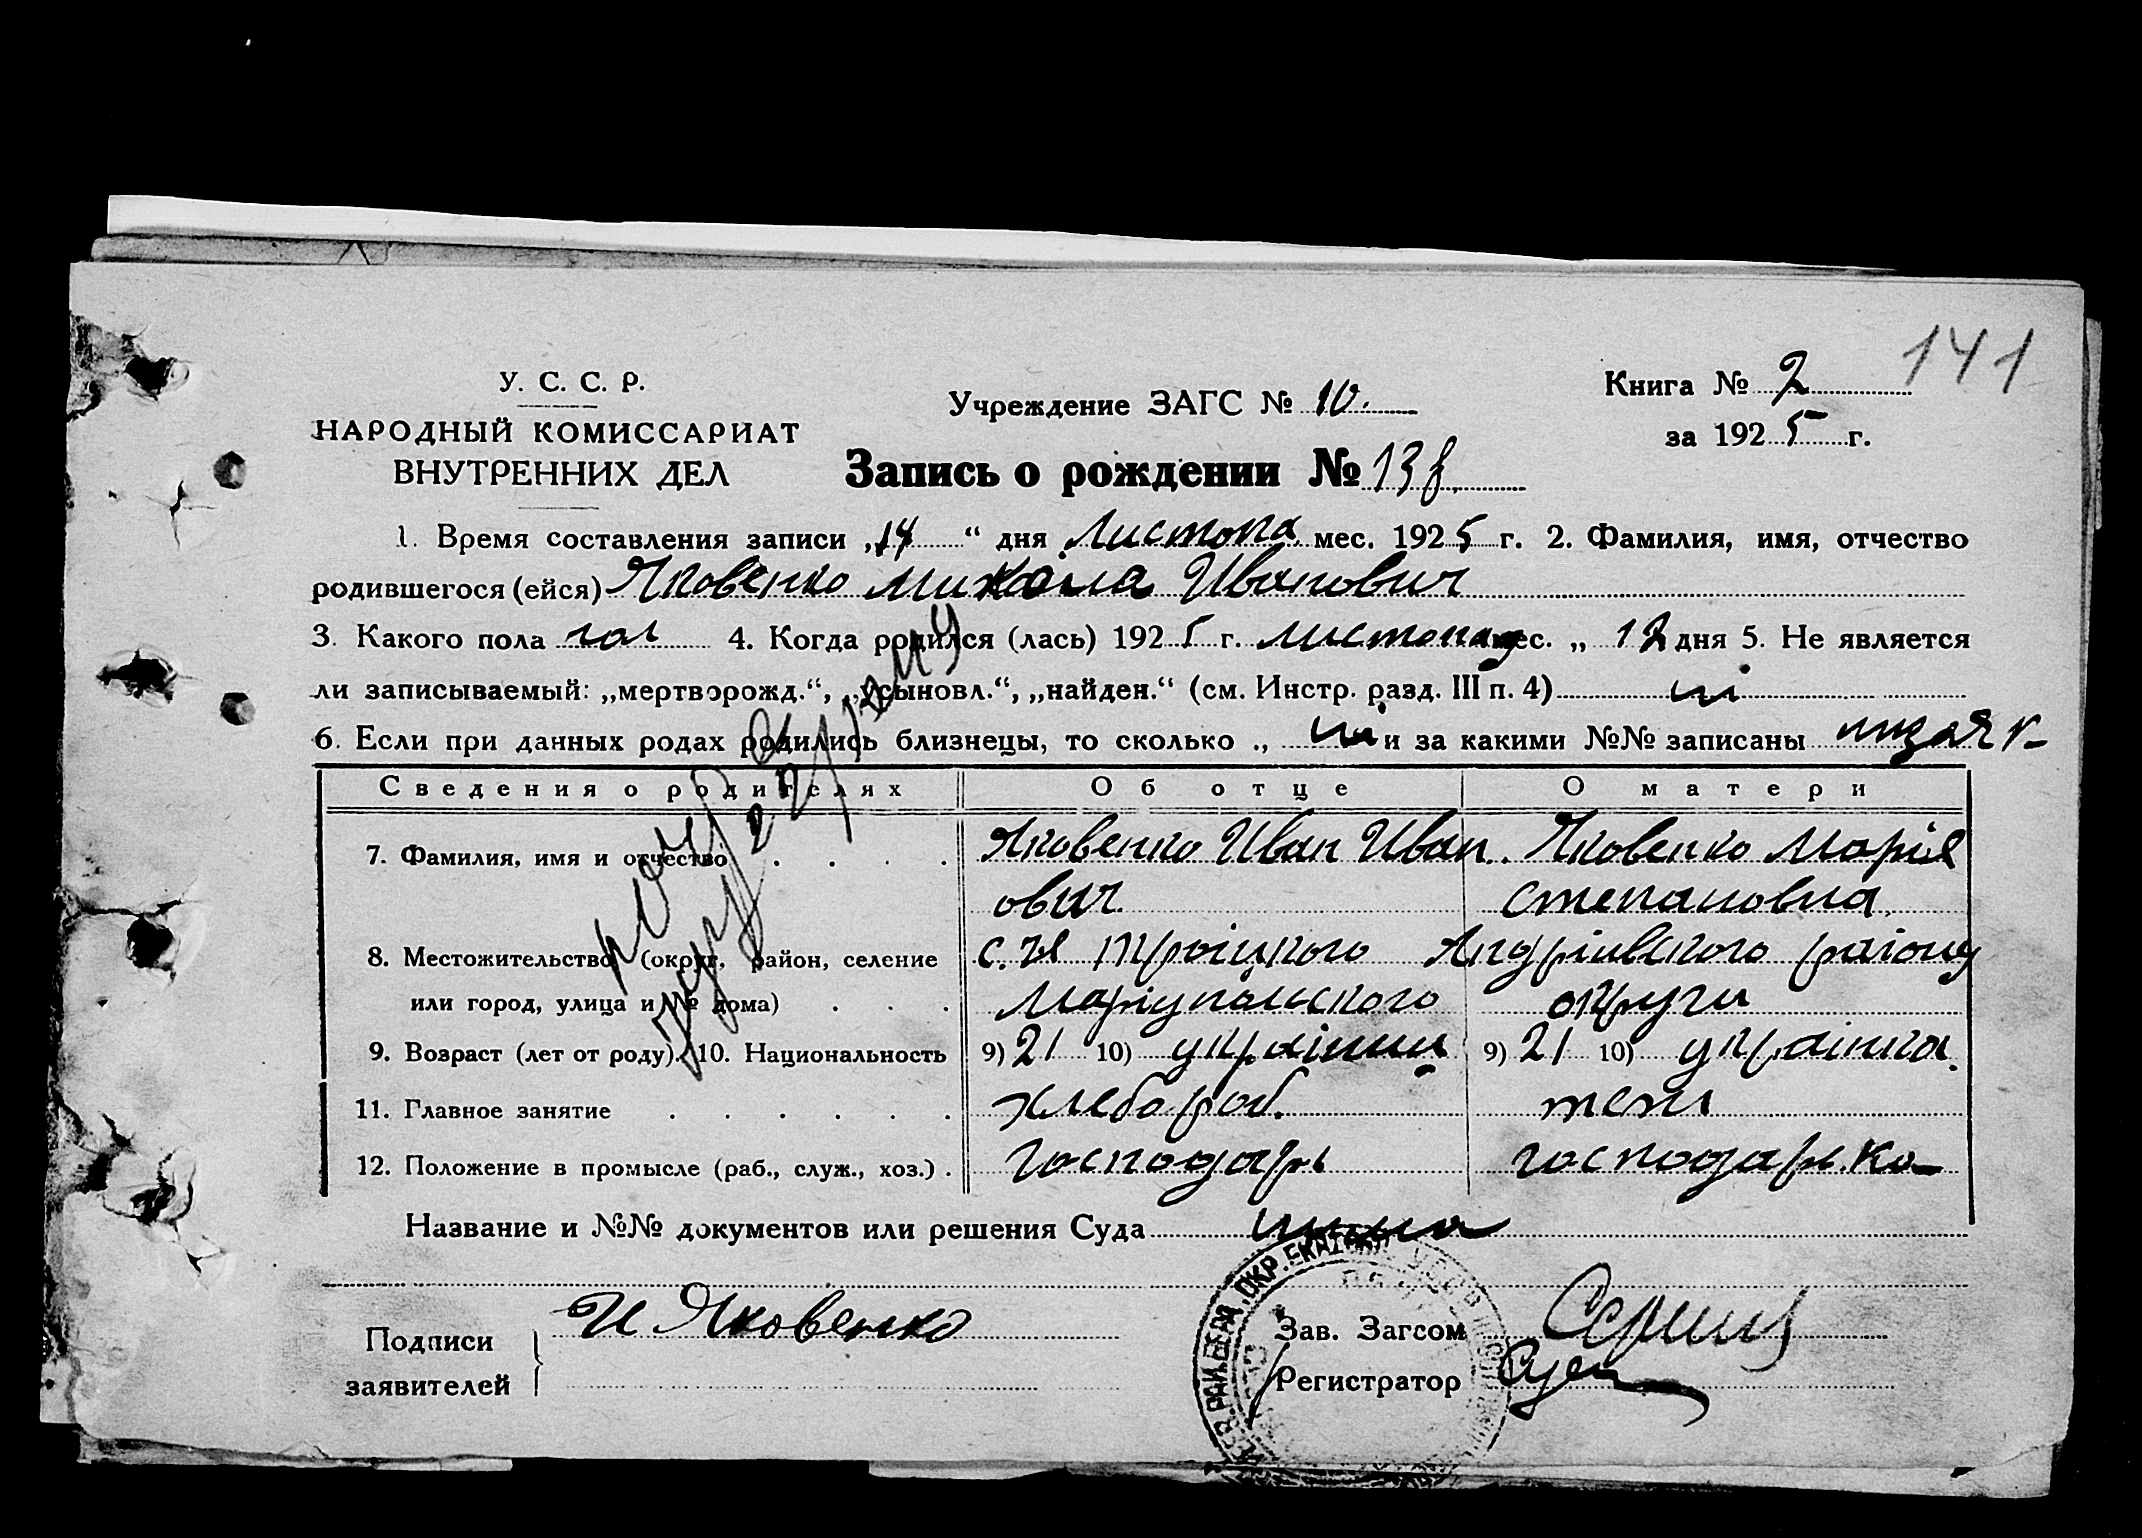 141
У. С. С. Р.
НАРОДНЫЙ КОМИССАРИАТ
ВНУТРЕННИХ ДЕЛ
Учреждение ЗАГС № 10.
Книга № 2
за 1925 г.
Запись о рождении № 138.
1. Время составления записи „14“ дня Листопа. мес. 1925 г. 2. Фамилия, имя, отчество
родившегося (ейся) Яковенко Михайла Иванович
3. Какого пола чол 4. Когда родился (лась) 1925 г. листопад мес. „ 12 дня 5. Не является
ли записываемый: „мертворожд.“, „усыновл.“, „найден.“ (см. Инстр. разд. III п. 4) ні
6. Если при данных родах родились близнецы, то сколько „ ні и за какими №№ записаны
Сведения о родителях Об отце О матери
7. Фамилия, имя и отчество . . . . Яковенко Иван Иван Яковенко Марія
ович Степановна
8. Местожительство (округ, район, селение с. Троіцкого Андріівского району
или город, улица и № дома) . . . Маріупольского округи
9. Возраст (лет от роду). 10. Национальность 9) 21 10) украінец 9) 21 10) украінка
11. Главное занятие . . . . . . хлебороб. теж
12. Положение в промысле (раб., служ., хоз.) . господарь господарька
Название и №№ документов или решения Суда
Подписи
заявителей
И Яковенко
Зав. Загсом
Регистратор